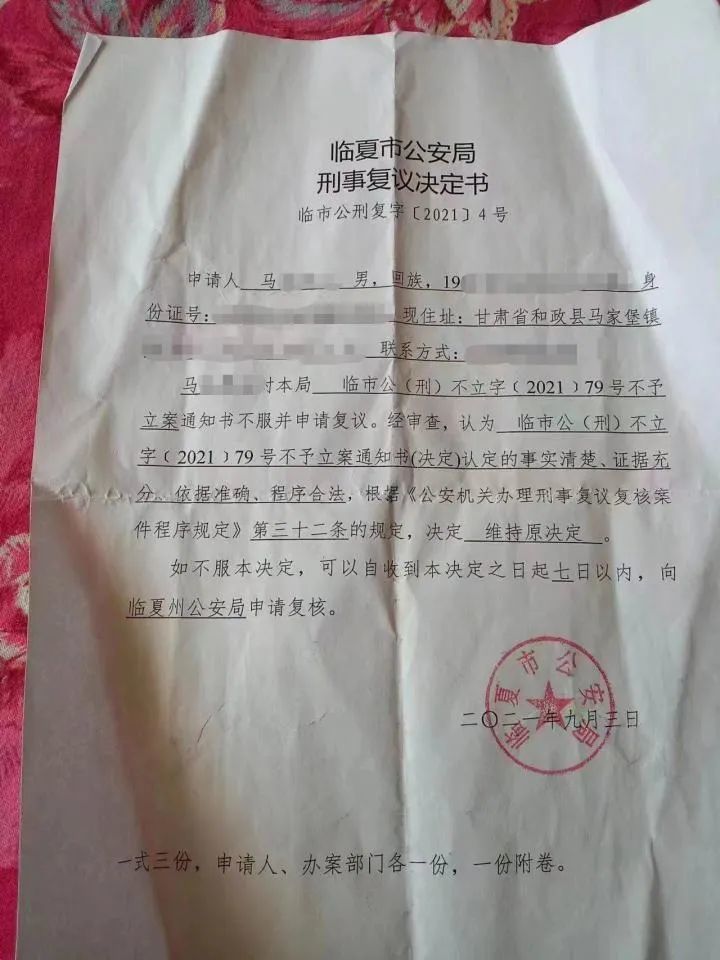 临夏市公安局
刑事复议决定书
临市公刑复字〔2021〕4号
申请人 马 男，回族，19 身
份证号： 现住址：甘肃省和政县马家堡镇
联系方式：
马 对本局 临市公（刑）不立字〔2021〕79号不予
立案通知书不服并申请复议。经审查，认为 临市公（刑）不立
字〔2021〕79号不予立案通知书(决定)认定的事实清楚、证据充
分、依据准确、程序合法，根据《公安机关办理刑事复议复核案
件程序规定》第三十二条的规定，决定 维持原决定 。
如不服本决定，可以自收到本决定之日起七日以内，向
临夏州公安局申请复核。
临夏市公安局
二〇二一年九月三日
一式三份，申请人、办案部门各一份，一份附卷。